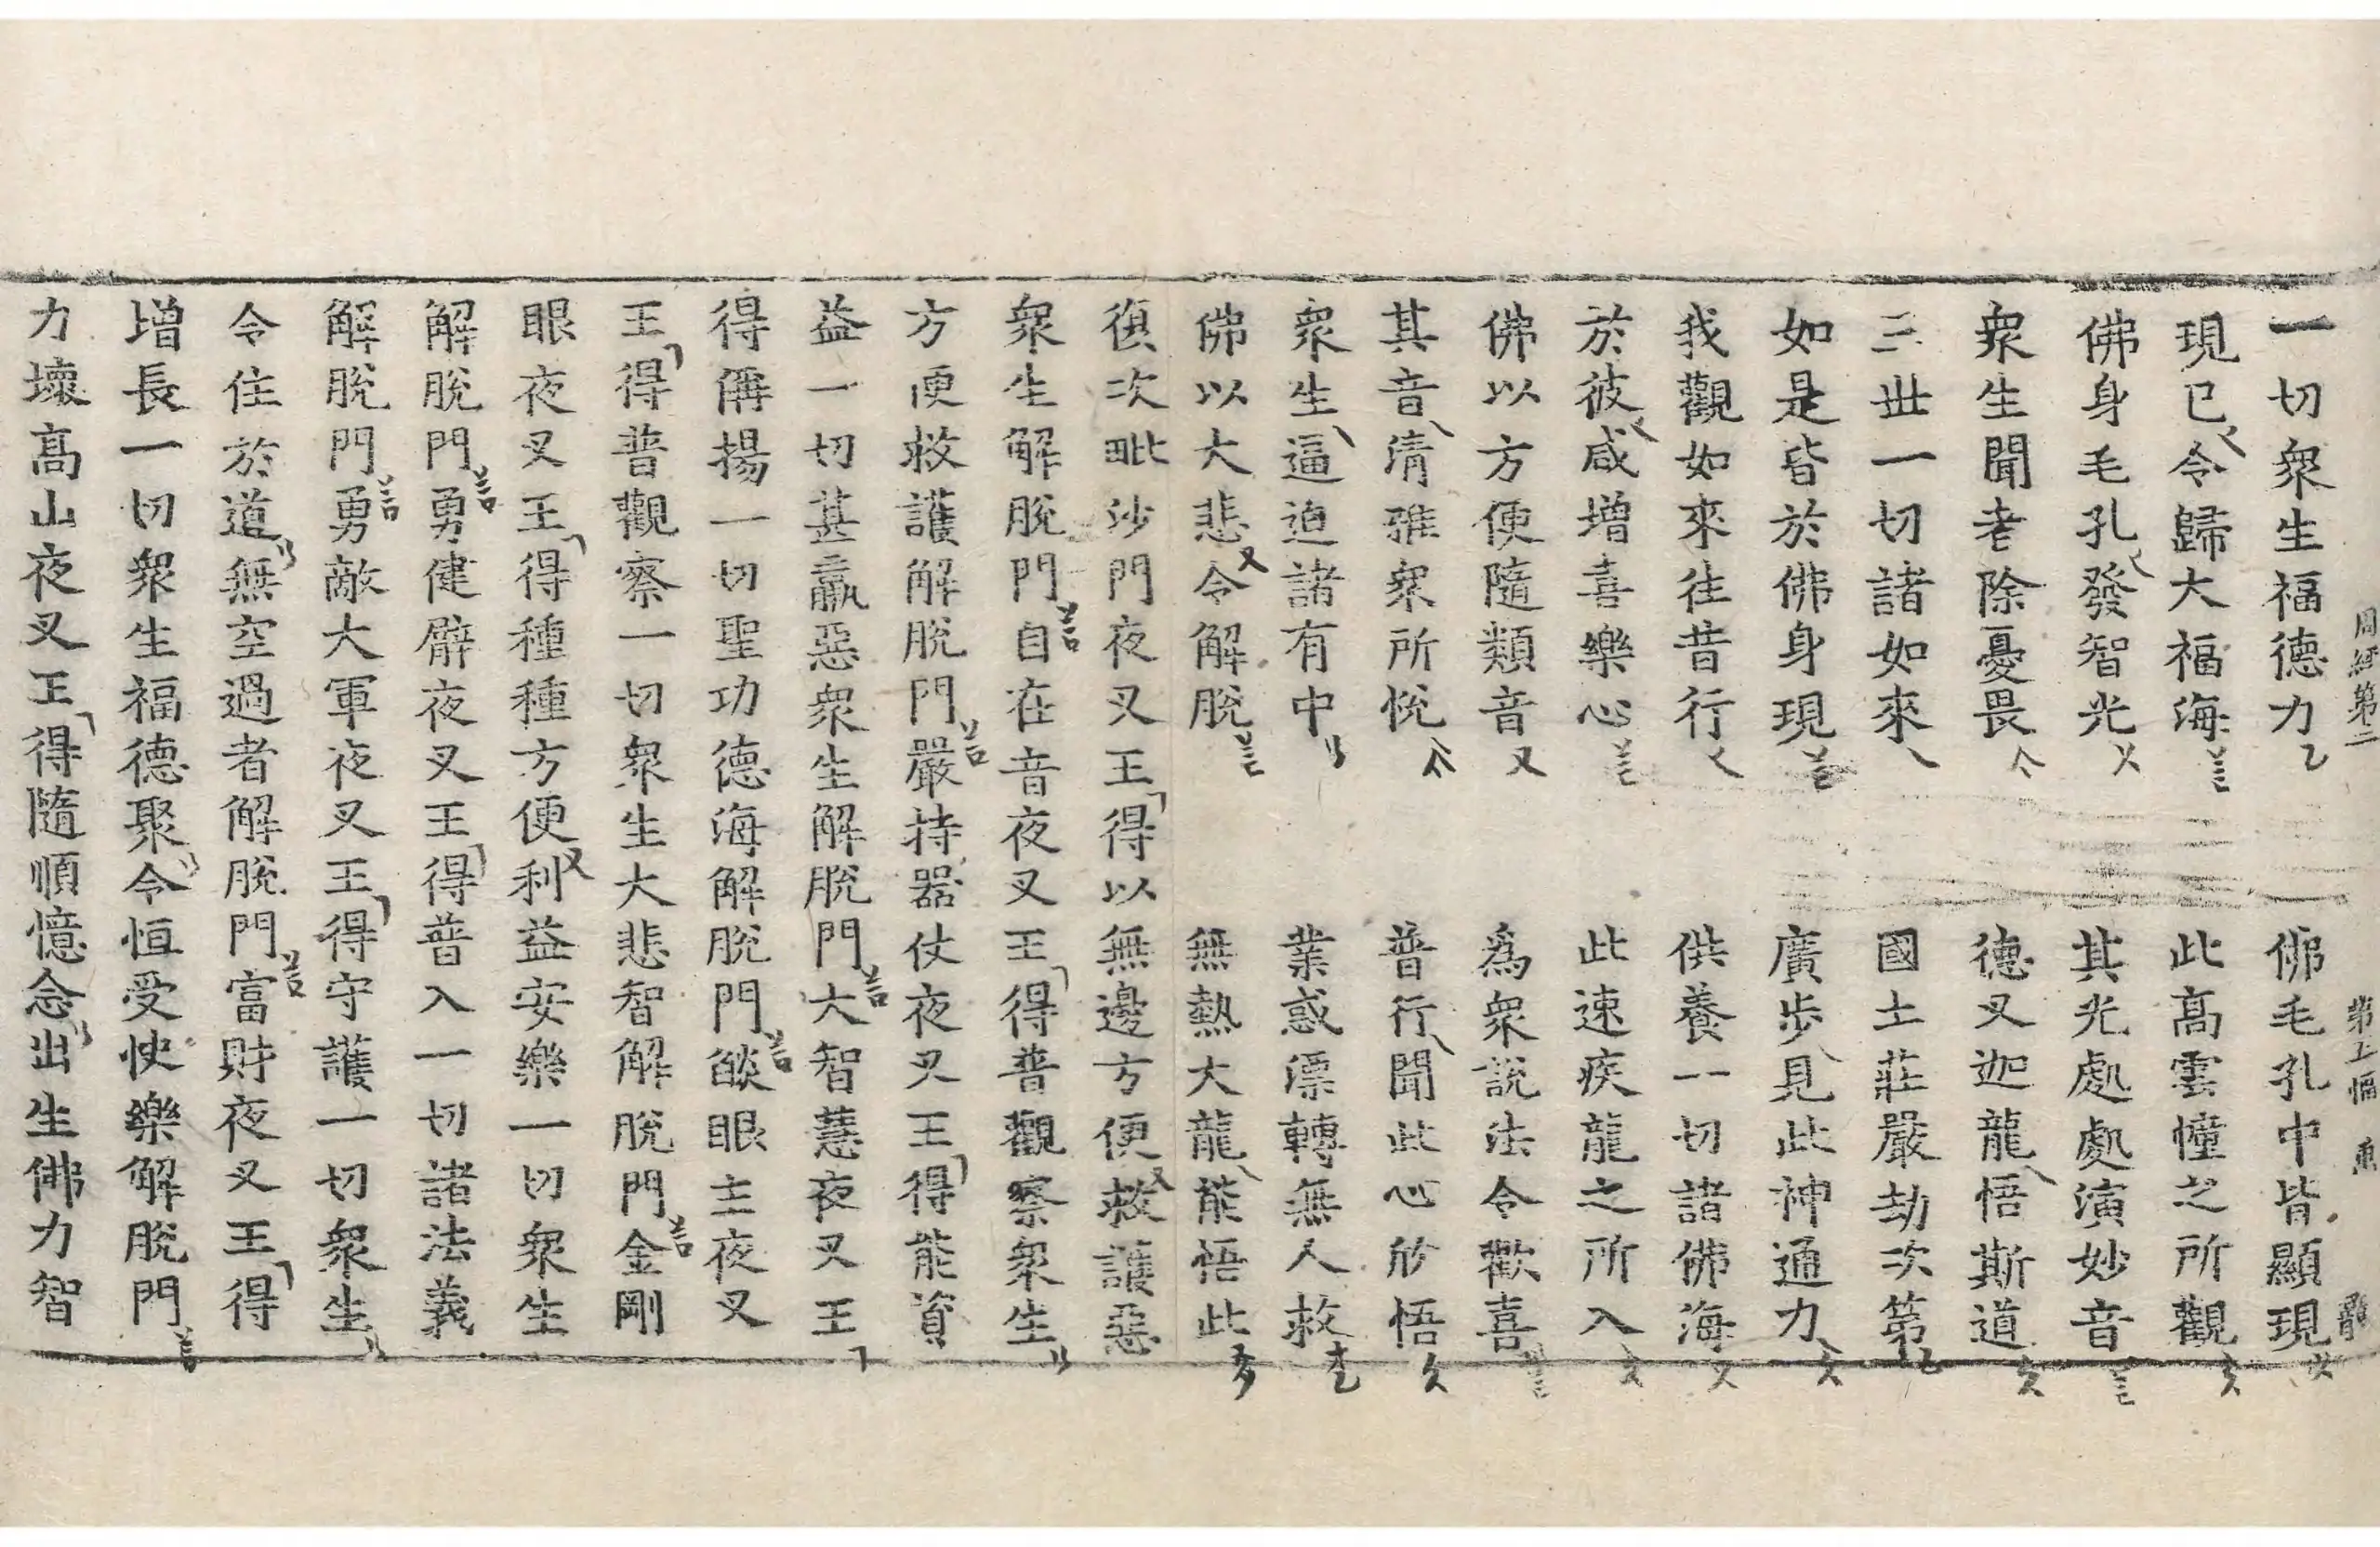 周經第二 第上幅 龍
一切衆生福德力 佛毛孔中皆顯現
現已令歸大福海 此髙雲幢之所觀
佛身毛孔發智光 其光處處演妙音
衆生聞者除憂畏 德叉迦龍悟斯道
三世一切諸如來 國土莊嚴劫次第
如是皆於佛身現 廣步見此神通力
我觀如來往昔行 供養一切諸佛海
於彼咸增喜樂心 此速疾龍之所入
佛以方便隨類音 爲衆說法令歡喜
其音清雅衆所悅 普行聞此心欣悟
衆生逼迫諸有中 業惑漂轉無人救
佛以大悲令解脫 無熱大龍能悟此
復次毗沙門夜叉王得以無邊方便救護惡
衆生解脫門自在音夜叉王得普觀察衆生
方便救護解脫門嚴持器仗夜叉王得能資
益一切甚羸惡衆生解脫門大智慧夜叉王
得稱揚一切聖功德海解脫門燄眼主夜叉
王得普觀察一切衆生大悲智解脫門金剛
眼夜叉王得種種方便利益安樂一切衆生
解脫門勇健臂夜叉王得普入一切諸法義
解脫門勇敵大軍夜叉王得守護一切衆生
令住於道無空過者解脫門富財夜叉王得
增長一切衆生福德聚令恒受快樂解脫門
力壞髙山夜叉王得隨順憶念出生佛力智